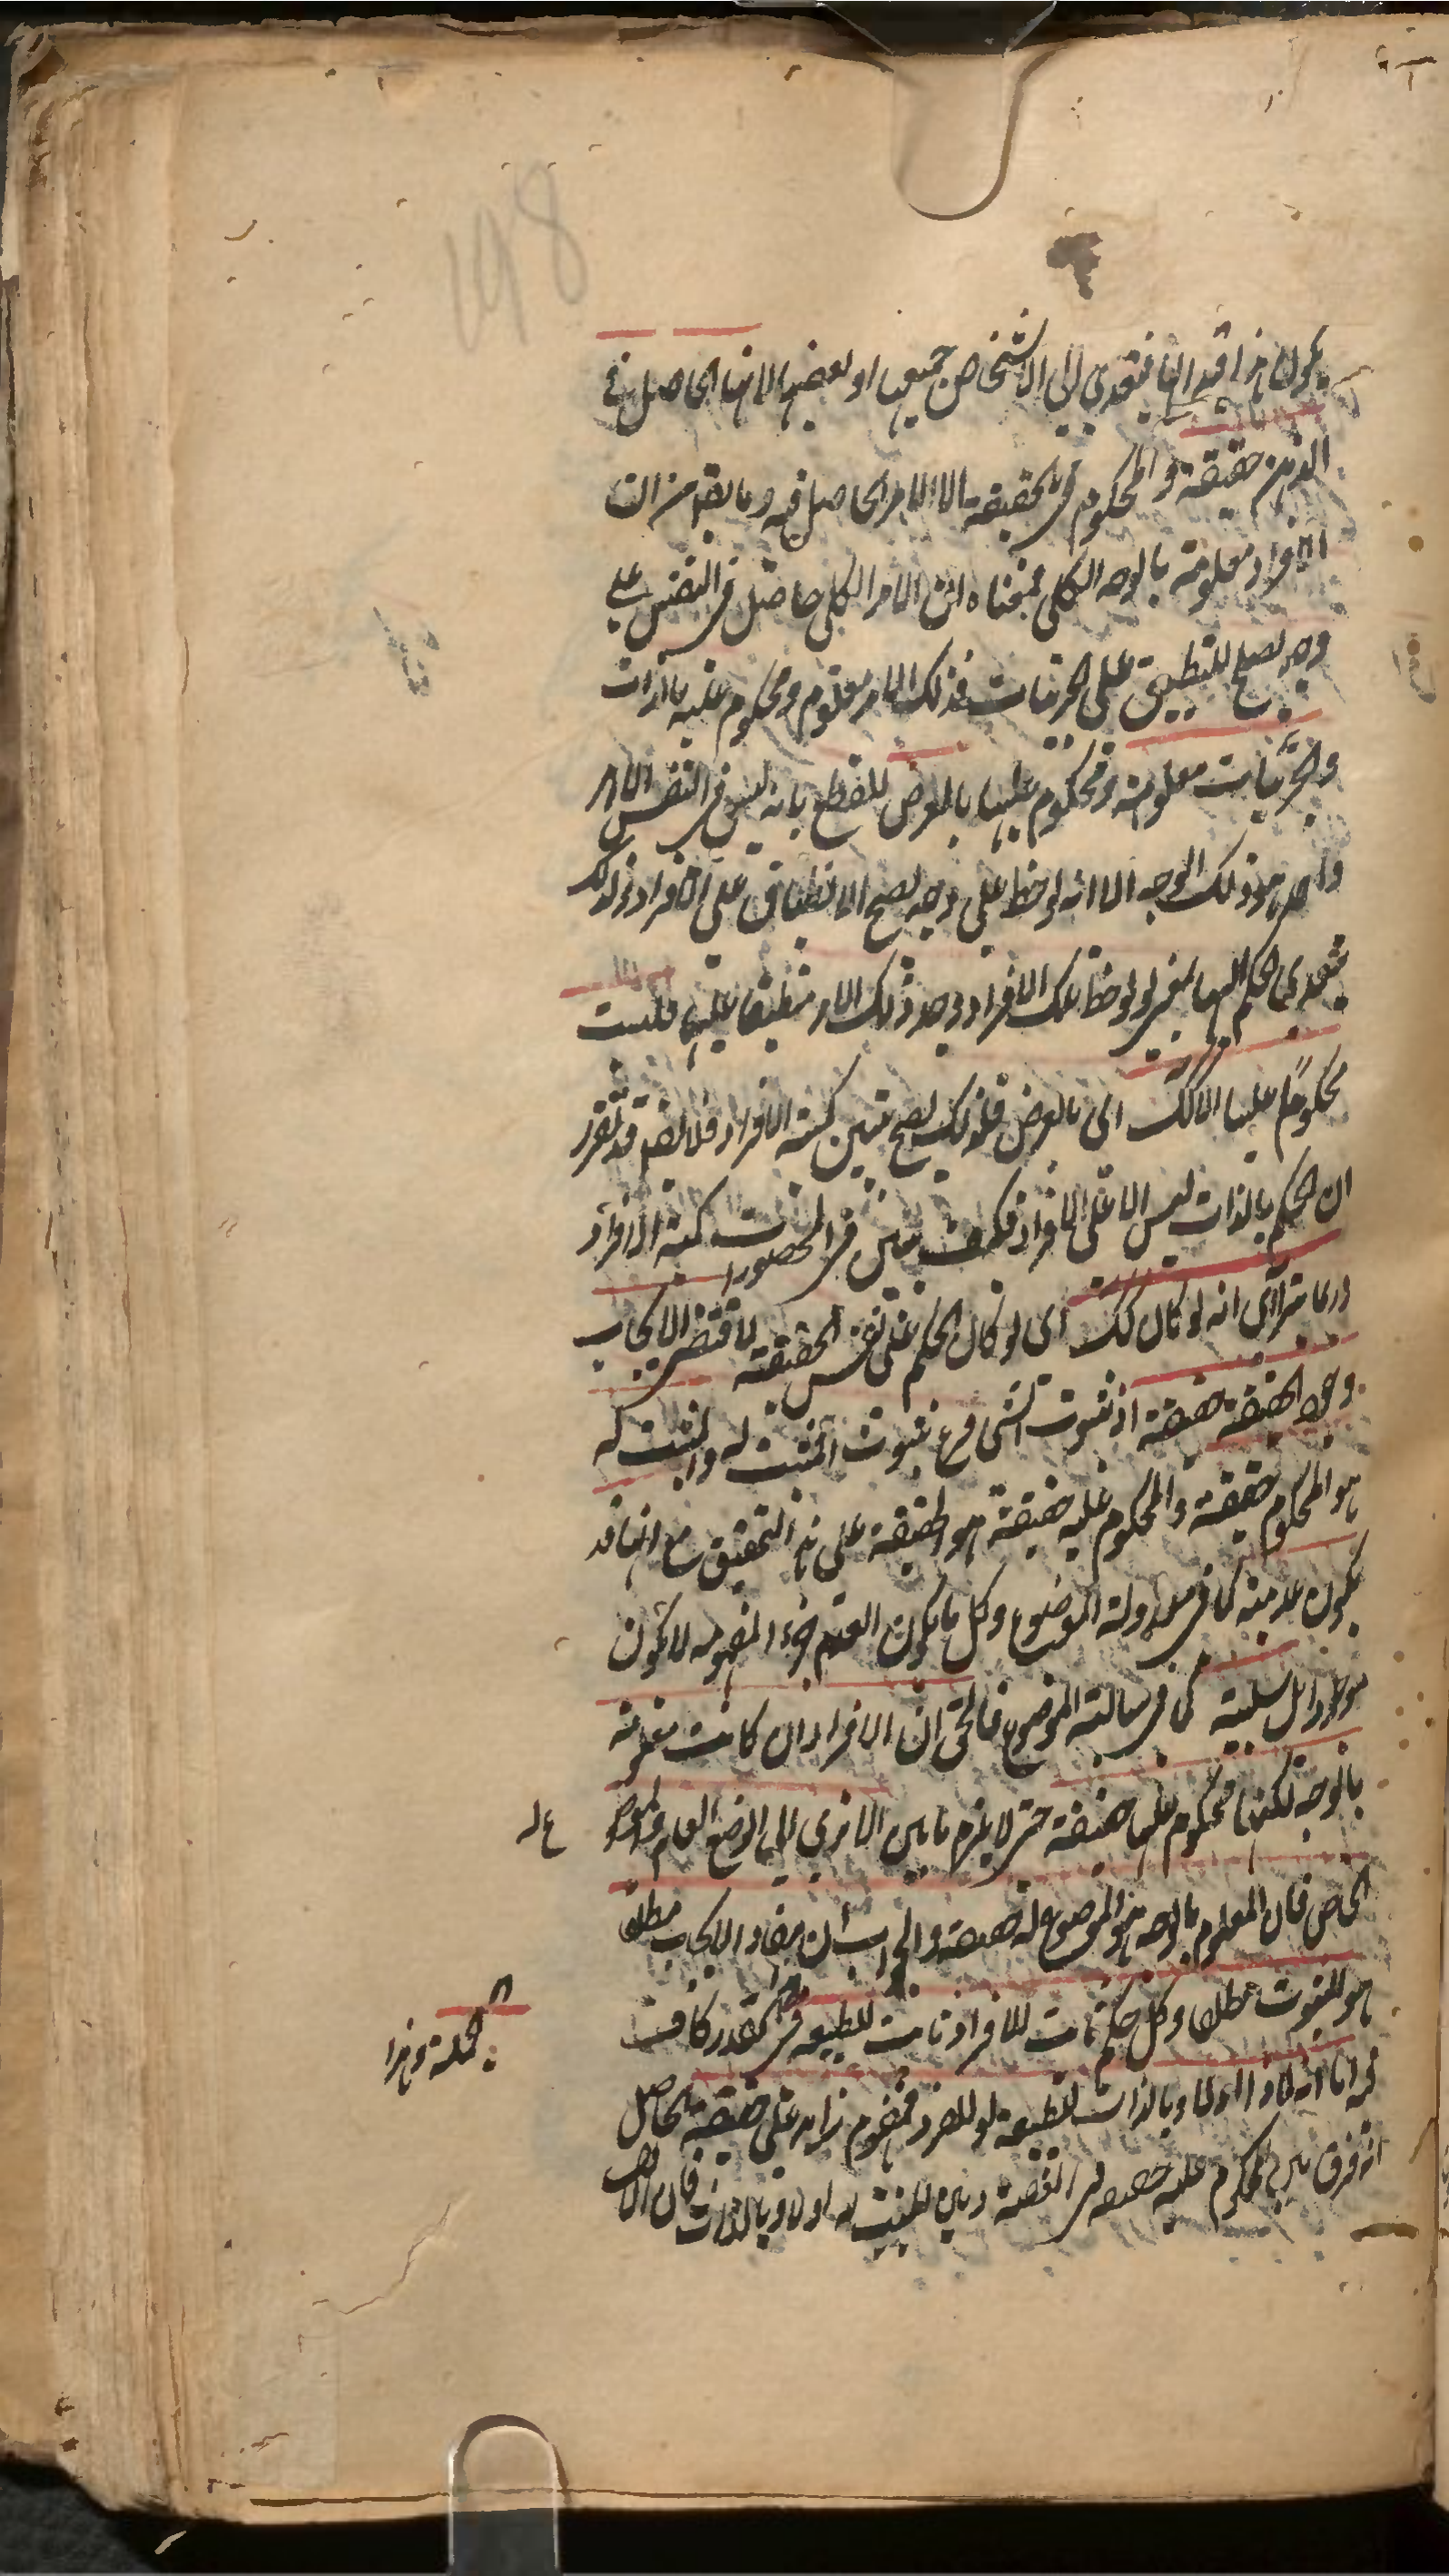 يكون هذا قيد الها فيتعدى الى الاشخاص جميعها او بعضها لانها الحاصل فى
الذهن حقيقة والمحكوم فى الحقيقة الا الامر الحاصل فيه وما يقم من ان
الافراد معلومة بالوجه الكلى فمعناه ان الامر الكلى حاصل فى النفس على
وجه يصلح للتطبيق على الجزئيات فذلك الامر معلوم ومحكوم عليه بالذات
والجزئيات معلومة ومحكوم عليها بالعرض للقطع بانه ليس فى النفس الا امر
واحد هو ذلك الوجه الا انه لوحظ على وجه يصح الانطباق على الافراد ولذلك
يتعدى الحكم اليها بمعنى لو لوحظ تلك الافراد وجد ذلك الامر منطبقا عليها فليست
محكوما عليها الا كك اى بالعرض فلذلك يصح تبيين كمية الافراد فلا يقم قد تقرر
ان الحكم بالذات ليس الا على الافراد فكيف يتبين فى المحصورات كمية الافراد
وربما يترااى انه لو كان كك اى لو كان الحكم على نفس الحقيقة لاقتضى الايجاب
وجود الحقيقة حقيقة اذ ثبوت الشى فرع ثبوت المثبت له والمثبت له
هو المحكوم حقيقة والمحكوم عليه حقيقة هو الحقيقة على هذا التحقيق مع انها قد
يكون عدمية كما فى معدولة الموضوع وكل ما يكون العدم جزء المفهومه لا يكون
موجودا بل سلبية كما فى سالبة الموضوع فالحق ان الافراد ان كانت معلومة
بالوجه لكنها محكوم عليها حقيقة حتى لا يلزم الا ترى الى الوضع العام والموضوع
له
الخاص فان المعلوم بالوجه هو الموضوع له حقيقة والجواب ان مفاد الايجاب مطلقا
هو الثبوت مطلقا وكل حكم ثابت للافراد ثابت للطبيعة فى القدر كاف
الجملة وهذا
فى اما انه ماذا اولا وبالذات للطبيعة او للفرد فمفهوم زايد على حقيقة الحاصل
انه فرق بين المحكوم عليه حقيقة فى القضية وبين المثبت له اولا وبالذات فان